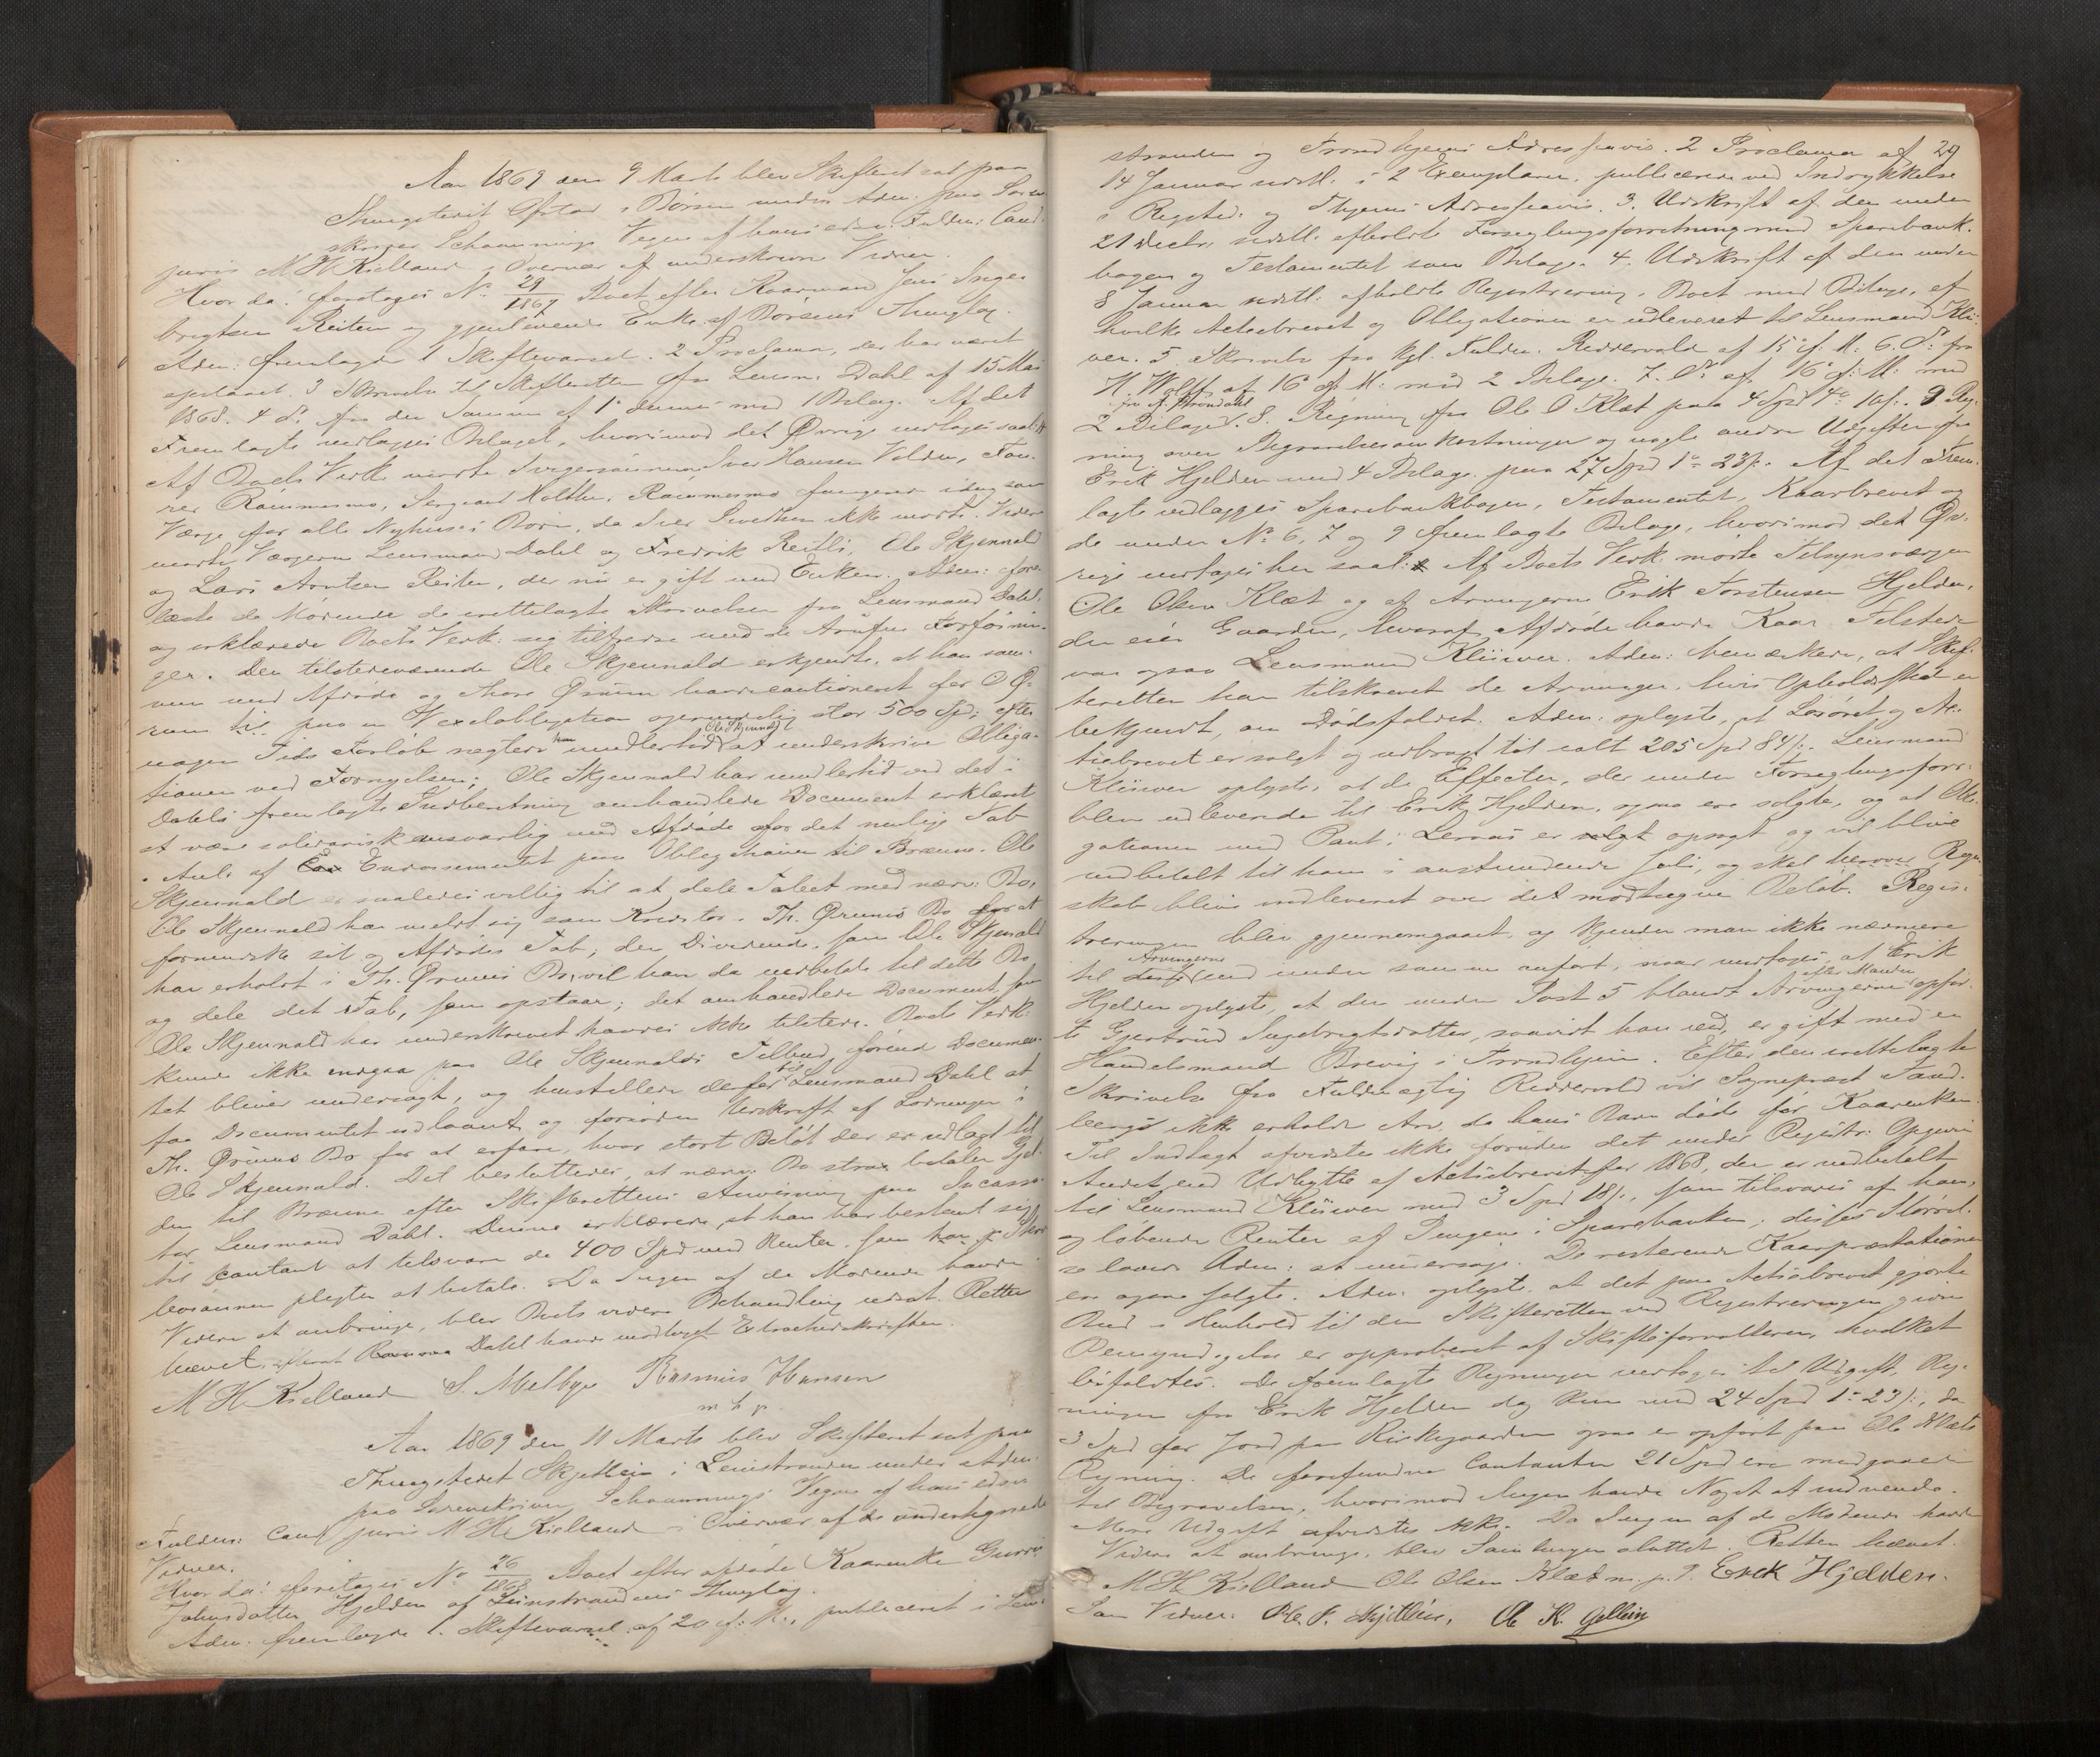 Aar 1869 den 9 Marts blev Skifteret sat paa
Thingstedet Opstad i Børsen under Adm: paa Soren-
skriver Schaannings Vegne af hans edsv. Fuldm: Cand.
juris M H Kielland i Overvær af underskrevne Vidner.
Hvor da: foretoges No 29/1869 Boet efter Kaarmand Jens Inge-
brigtsen Reiten og gjenlevende Enke af Børsens Thinglag.
Adm: fremlagde 1 Skiftevarsel. 2 Proclama, der har været
opslaaet. 3 Skrivelse til Skifteretten fra Lensm. Dahl af 15 Mai
1868. 4 do. fra den Samme af 1ste dennes med 1 Bilag. Af det
Fremlagte vedlægges Bilaget, hvorimod det Øvrige indtages saal:
Af Boets Vedk mødte Svigersønnen Iver Hansen Volden, Fou-
rer Raimmesmo, Sergeant Holthe. Raimmesmo fungerer idag som
Værge for alle Nyhuses Børn, da Iver Sivertsen ikke mødte. Videre
mødte Værgerne Lensmand Dahl og Fredrik Reitli, Ole Skjennald
og Lars Arntsen Reiten, der nu er gift med Enken. Adm: fore-
læste de Mødende de irettelagte Skrivelser fra Lensmand Dahl,
og erklærede Boets Vedk: sig tilfredse med de trufne Forføinin-
ger. Den tilstedeværende Ole Skjennald erkjendte, at han sam-
men med Afdøde og Thore Ørum havde cautioneret for O Ø-
rum til paa en Vexelobligation oprindelig stor 500 Spd; efter
nogen Tids Forløb nægtede han imidlertid Ole Skjennald at underskrive Obliga-
tionen ved Fornyelsen; Ole Skjennald har imidlertid ved det i
Dahls fremlagte Indberetning omhandlede Document erklæret
at være solidarisk ansvarlig med Afdøde for det mulige Tab
i Anl. af Endossementet paa Obligationen til Brænne. Ole
Skjennald er saaledes villig til at dele Tabet med nærv: Bo,
Ole Skjennald har meldt sig som Kreditor i Th. Ørums Bo for at
formindske sit og Afdødes Tab; den Dividende, som Ole Skjennald
har erholdt i Th. Ørums Bo, vil han da indbetale til dette Bo
og dele det Tab, som opstaar; det omhandlede Document, som
Ole Skjennald har underskrevet havdes ikke tilstede. Boets Vedk:
kunde ikke indgaa paa Ole Skjennalds Tilbud, førend Documen-
tet bliver undersøgt, og henstillede derfor til Lensmand Dahl at
faa Documentet udlaant og foruden Udskrift af Lodningen i
Th. Ørums Bo for at erfare, hvor stort Beløb der er udlagt til
Ole Skjennald. Det besluttedes, at nærv. Bo strax betaler Gjel-
den til Brænne efter Skifterettens Anvisning paa Incassa-
tor Lensmand Dahl. Denne erklærede, at han har bestemt sig
til contant at tilsvare de 400 Spd med Renter, som han p. Skri-
bosannen pligter at betale. Da Ingen af de Mødende havde
Videre at anbringe, blev Boets videre Behandling udsat. Retten
hævet, efterat Dahl havde modtaget Extractudskriften.
M H Kielland S. Melbye Rasmus Hansen
m p
Aar 1869 den 11 Marts blev Skifteret sat paa
Thingstedet Skjetlein i Leinstranden under Adm.
paa Sorenskriver Schaannings Vegne af hans edsv
Fuldm: Cand juris M H Kielland i Overvær af de undertegnede
Vidner.
Hvor da: foretoges No 26/1868 Boet efter afdøde Kaarenke Gurru
Johnsdatter Hjelden af Leinstrandens Thinglag.
Adm: fremlagde 1. Skiftevarsel af 20 f: M., publiceret i Lein-
29
stranden og Trondhjems Adresseavis. 2 Proclama af
14 Januar sidstl. i 2 Exemplarer, publicerede ved Indrykkelse
i Rigstid. og Thjems Adresseavis. 3. Udskrift af den under
21 Decbr. sidstl. afholdte Forseglingsforretning med Sparebank-
bogen og Testamentet som Bilage. 4. Udskrift af den under
8 Januar sidstl: afholdte Registrering i Boet med Bilage, af
hvilke Actiebrevet og Obligationen er udleveret til Lensmand Klü-
ver. 5 Skrivelse fra Kgl. Fuldm. Reddervold af 15 f. M. 6. Do: fra
H. Wolff af 16 f. M: med 2 Bilage. 7. Do af 16 f: M: med
2 Bilage fra A. Brøndahl. 8. Regning fra Ole O Klæt paa 4 Spd 4 16 s. 9 Reg-
ning over Begravelsesomkostninger og nogle andre Udgifter fra
Erik Hjelden med 4 Bilage paa 27 Spd 1 23 s. Af det Frem-
lagte vedlægges Sparebankbogen, Testamentet, Kaarbrevet og
de under No 6, 7 og 9 fremlagte Bilage, hvorimod det Øv-
rige indtages her saal: Af Boets Vedk. mødte Tilsynsværgen
Ole Olsen Klæt og af Arvingerne Erik Torstensen Hjelden,
der eier Gaarden, hvoraf Afdøde havde Kaar. Tilstede
var ogsaa Lensmand Klüwer. Adm: bemærkede, at Skif-
teretten har tilskrevet de Arvinger, hvis Opholdssted er
bekjendt, om Dødsfaldet. Adm. oplyste, at Løsøret og Ac-
tiebrevet er solgt og udbragt til ialt 205 Spd 84 s. Lensmand
Klüwer oplyste, at de Effecter, der under Forseglingsforr:
blev udleverede til Erik Hjelden, ogsaa ere solgte, og at Obli-
gationen med Pant i Lerraas er opsagt og vil blive
indbetalt til ham i anstundende Juli, og skal herover Regn-
skab blive indleveret over det modtagne Beløb. Regis-
treringen blev gjennemgaaet, og kjender man ikke nærmere
til Arvingerne end under samme anført, naar undtages, at Erik
Hjelden oplyste, at den under Post 5 blandt Arvingerne efter Manden opfør-
te Gjertrud Ingebrigtsdatter, saavidt han ved, er gift med en
Handelsmand Brevig i Trondhjem. Efter den irettelagte
Skrivelse fra Fuldmægtig Reddervold vil Sognepræst Tand-
bergs ikke erholde Arv, da hans Barn døde før Kaarenken.
Til Indtægt afvidstes ikke foruden det under Registr: Opgivne
Andet end Udbytte af Actiebrevet for 1868, der er indbetalt
til Lensmand Klüwer med 3 Spd 18 s., som tilsvares af ham,
og løbende Renter af Pengene i Sparebanken; disses Størrel-
se lovede Adm: at undersøge. De resterende Kaarpræstationer
ere ogsaa solgte. Adm. oplyste, at det paa Actiebrevet gjorte
Bud i Henhold til den Skifteretten ved Registreringen givne
Bemyndigelse er approberet af Skifteforvalteren, hvilket
bifaldtes. De fremlagte Regninger indtages til Udgift, Reg-
ningen fra Erik Hjelden dog kun med 24 Spd 1 23 s., da
3 Spd for Jord paa Kirkegaarden ogsaa er opført paa Ole Klæts
Regning. De forefundne Contanter 21 Spd ere medgaaet
til Begravelsen, hvorimod Ingen havde Noget at indvende.
Mere Udgift afvidstes ikke. Da Ingen af de Mødende havde
Videre at anbringe, blev Samlingen sluttet. Retten hævet.
M H Kielland Ole Olsen Klæt m. p. P. Erik Hjelden.
Som Vidner: Ole P. Skjetlein, Ole K. Gellein